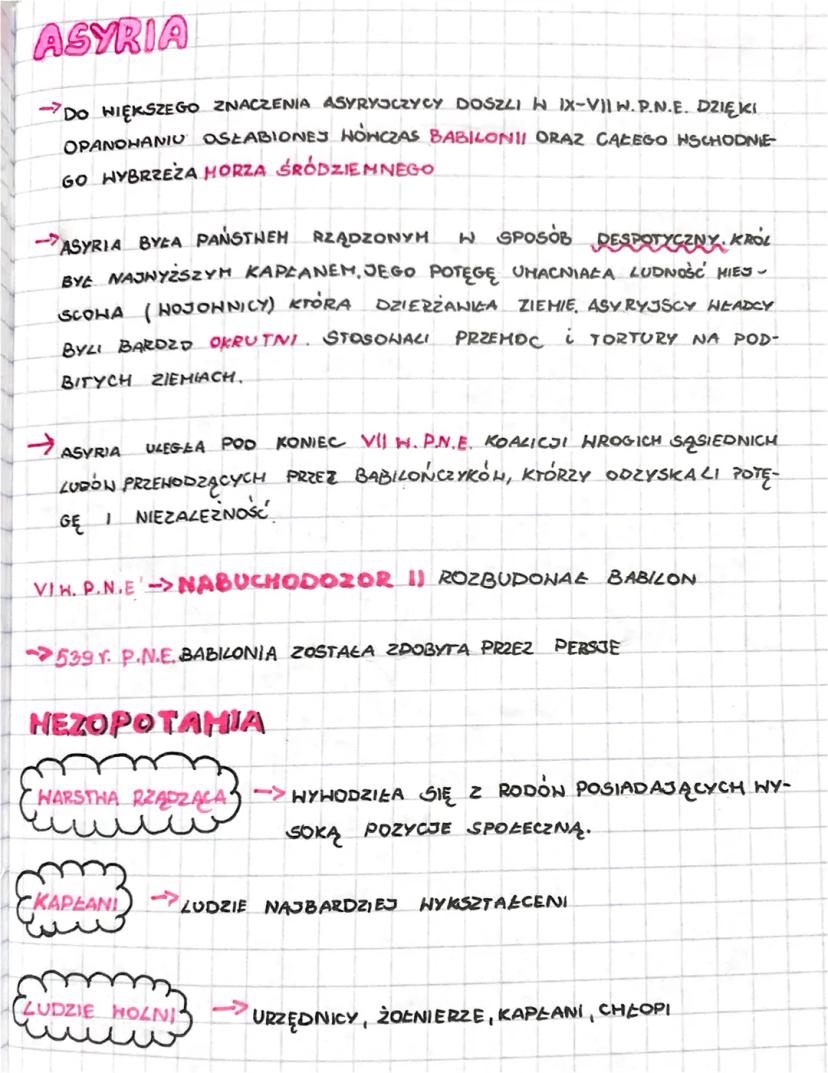 ASYRIA
→ DO WIĘKSZEGO ZNACZENIA ASYRYJCZYCY DOSZLI W IX-VII W. P.N.E. DZIĘKI
OPANOWANIU OSŁABIONEJ WÓWCZAS BABILONII ORAZ CAŁEGO WSCHODNIE-
GO WYBRZEŻA MORZA ŚRÓDZIEMNEGO
→ ASYRIA BYŁA PAŃSTWEM RZĄDZONYM W SPOSÓB DESPOTYCZNY. KRÓL
BYŁ NAJWYŻSZYM KAPŁANEM. JEGO POTĘGĘ UMACNIAŁA LUDNOŚĆ MIEJ-
SCOWA (WOJOWNICY) KTÓRA DZIERŻAWIŁA ZIEMIE. ASYRYJSCY WŁADCY
BYLI BARDZO OKRUTNI. STOSOWALI PRZEMOC i TORTURY NA POD-
BITYCH ZIEMIACH.
→ ASYRIA ULEGŁA POD KONIEC VII W. P.N.E. KOALICJI WROGICH SĄSIEDNICH
LUDÓW PRZEWODZĄCYCH PRZEZ BABILOŃCZYKÓW, KTÓRZY ODZYSKALI POTĘ-
GĘ I NIEZALEŻNOŚĆ.
VI W. P.N.E → NABUCHODOZOR II ROZBUDOWAŁ BABILON
→ 539 r. P.N.E. BABILONIA ZOSTAŁA ZDOBYTA PRZEZ PERSJE
MEZOPOTAMIA
WARSTWA RZĄDZĄCA → WYWODZIŁA SIĘ Z RODÓW POSIADAJĄCYCH WY-
SOKĄ POZYCJE SPOŁECZNĄ.
KAPŁANI → LUDZIE NAJBARDZIEJ WYKSZTAŁCENI
LUDZIE WOLNI → URZĘDNICY, ŻOŁNIERZE, KAPŁANI, CHŁOPI